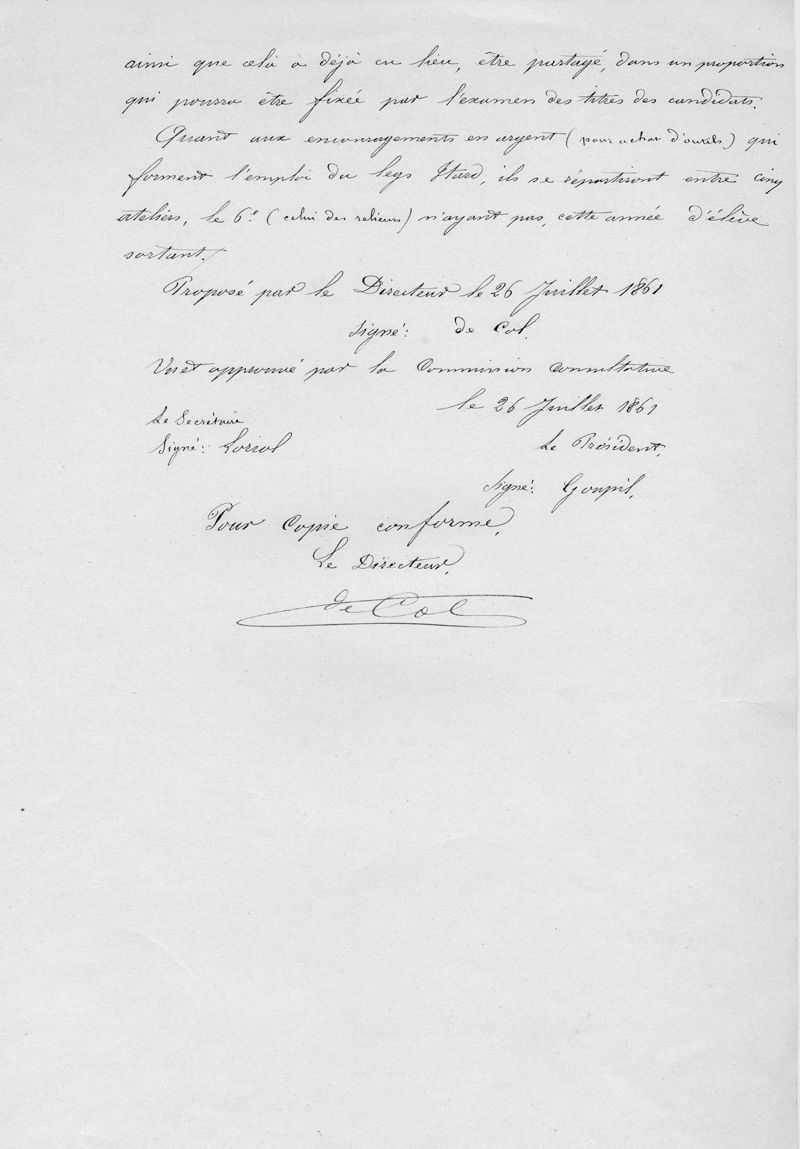 ainsi que celà a déjà eu lieu, être partagé, dans un proportion
qui pourra être fixée par l'examen des titres des candidats.
Quant aux encouragements en argent (pour achat d'outils) qui
forment l'emploi du legs Itard, ils se répartiront entre cinq
ateliers, le 6e (celui des relieurs) n'ayant pas, cette année d'élève
sortant./
Proposé par le Directeur le 26 Juillet 1861
Signé: de Col.
Vu et approuvé par la Commission consultative
le 26 Juillet 1861
Le Secrétaire
Signé: Loriol
Le Président,
Signé: Goupil,
Pour Copie conforme,
Le Directeur,
de Col